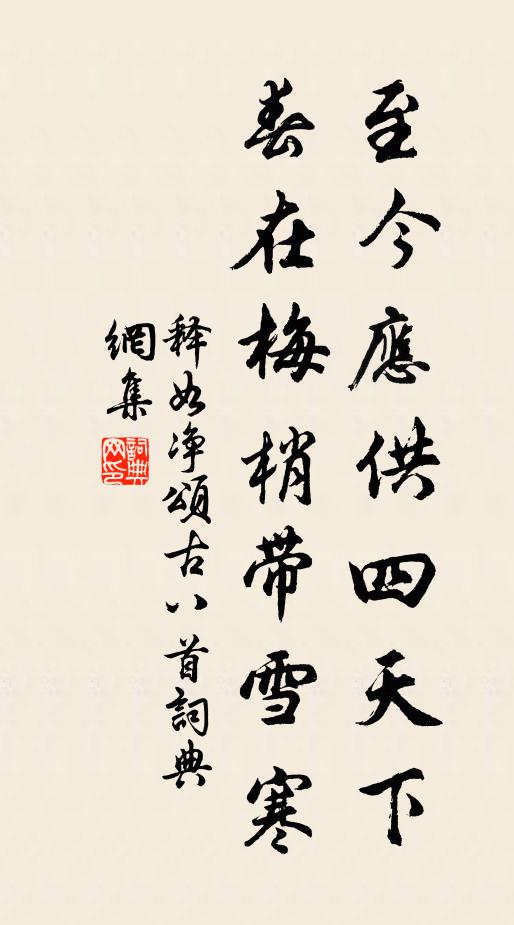 至今應供四天下
春在梅梢帶雪寒
释如净頌古八首詞典
網集
詞典
网印